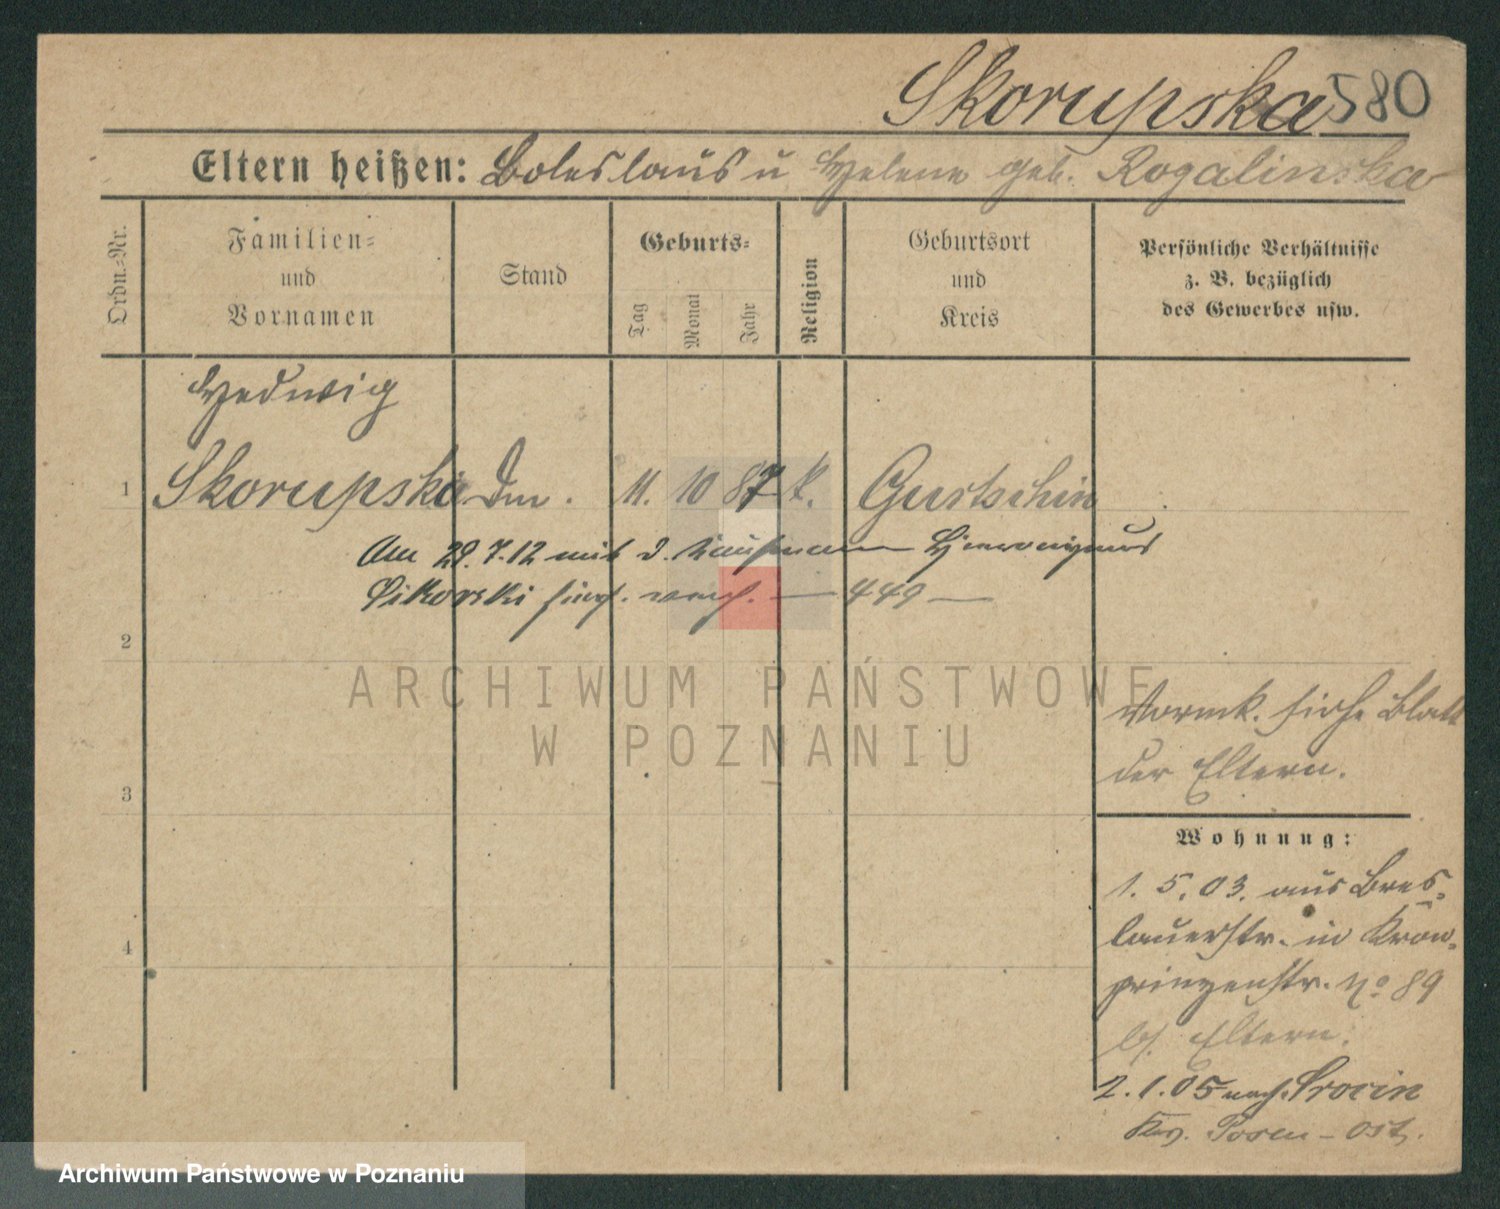 Skorupska 580
Eltern heißen: Boleslaus u Helene geb. Rogalinska
Ordn.-Nr.
Familien-
und
Vornamen
Stand
Geburts-
Tag
Monat
Jahr
Religion
Geburtsort
und
Kreis
Persönliche Verhältnisse
z. B. bezüglich
des Gewerbes usw.
Hedwig
1 Skorupska 11. 10 87 k. Gurtschin
Am 29.7.12 mit d. Kaufmann Hieronymus
Sikorski 449
2
ARCHIWUM PAŃSTWOWE
W POZNANIU
3
4
Vermk. siehe Blatt
der Eltern.
Wohnung:
1. 5. 03. aus Bres-
lauerstr. in Kron-
prinzenstr. No 89
b/ Eltern.
2.1.05 nach Srocin
Posen-Ost.
Archiwum Państwowe w Poznaniu